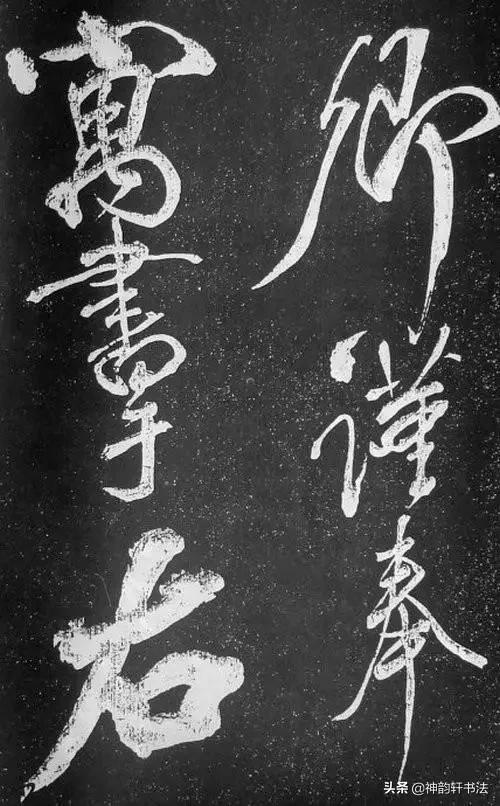 卿謹奉
寓書于右
头条 @神韵轩书法